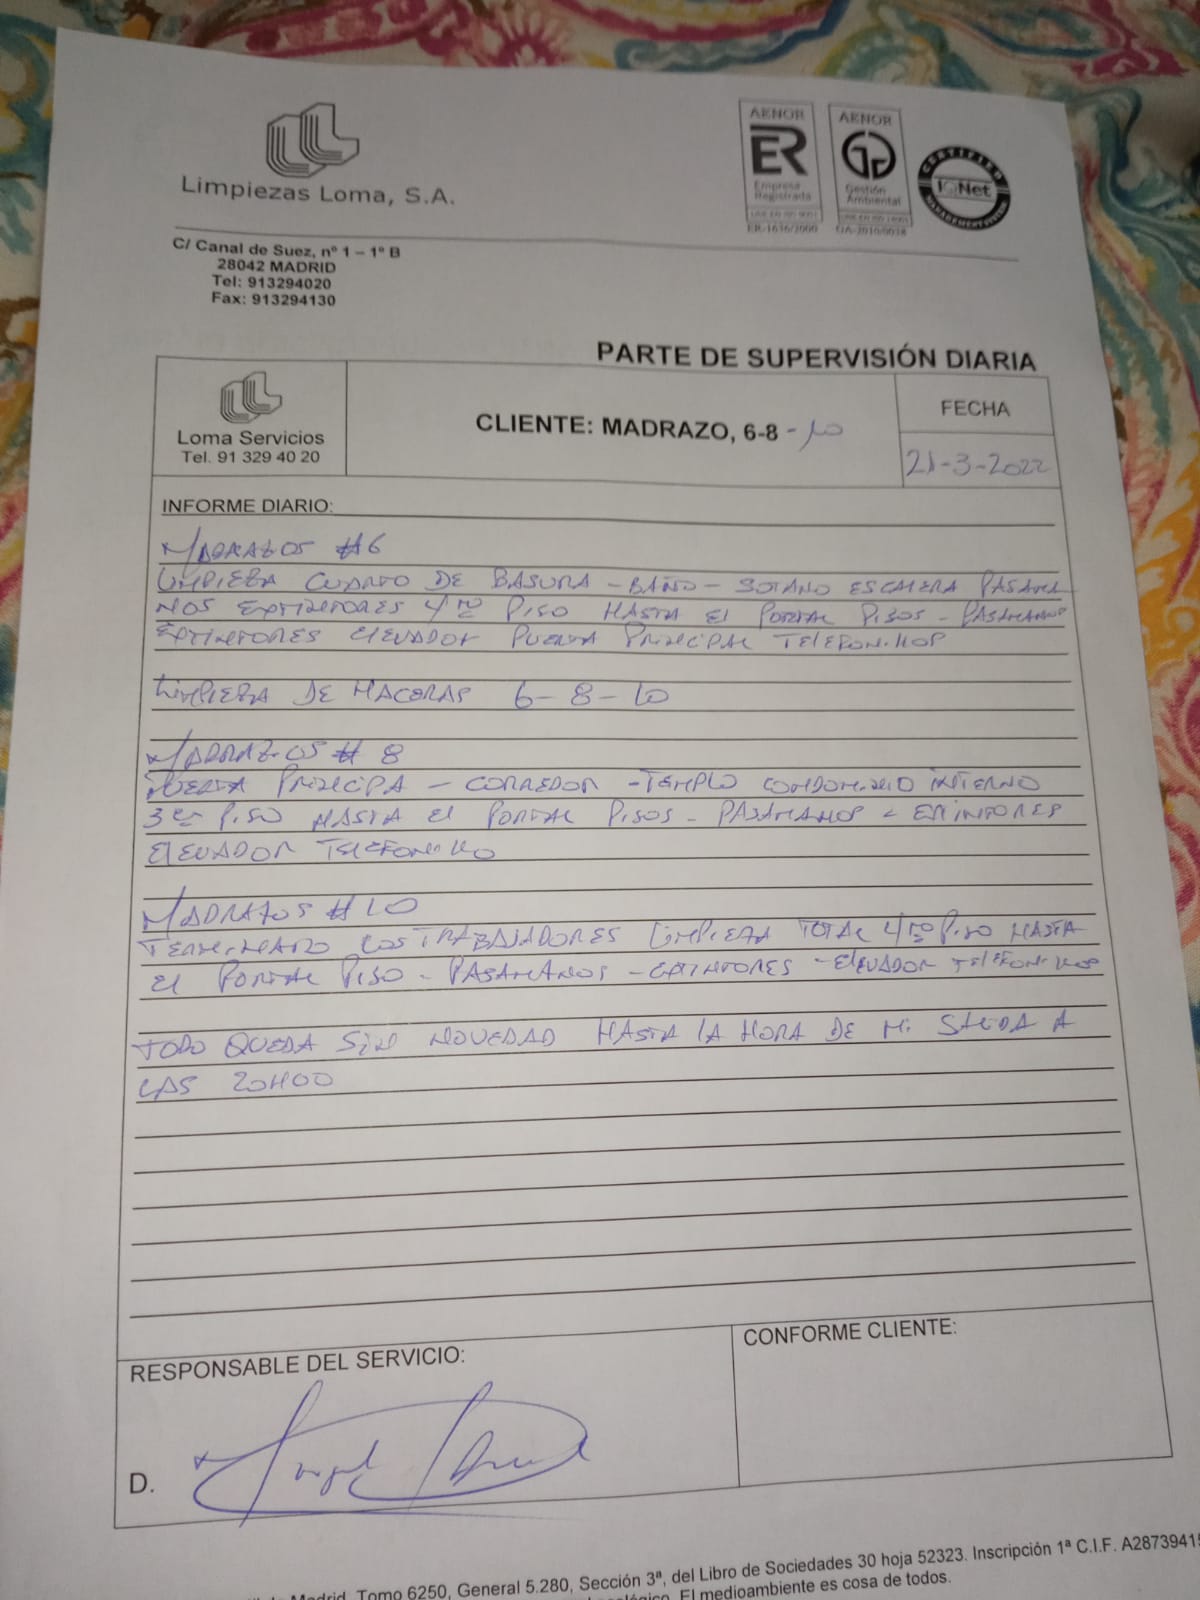 Limpiezas Loma, S.A.
AENOR
ER
Empresa
Registrada
ER-1636/2000
AENOR
Gestión
Ambiental
GA-2010/0038
CERTIFIED
IQNet
MANAGEMENT SYSTEM
C/ Canal de Suez, nº 1 – 1º B
28042 MADRID
Tel: 913294020
Fax: 913294130
PARTE DE SUPERVISIÓN DIARIA
Loma Servicios
Tel. 91 329 40 20
CLIENTE: MADRAZO, 6-8 - 10
FECHA
21-3-2022
INFORME DIARIO:
MADRAZOS #6
LIMPIEZA CUARTO DE BASURA - BAÑO - SOTANO ESCALERA PASAMA
NOS EXTINTORES 4/TO PISO HASTA EL PORTAL PISOS - PASAMANOS
EXTINTORES ELEVADOR PUERTA PRINCIPAL TELEFONIKOS
LIMPIEZA DE MACERAS 6-8-10
MADRAZOS # 8
PUERTA PRINCIPA - CORREDOR - TEMPLO CONDOMINIO INTERNO
3er PISO HASTA EL PORTAL PISOS - PASAMANOS - EXTINTORES
ELEVADOR TELEFONIKO
MADRAZOS # 10
TERMINADO LOS TRABAJADORES LIMPIEZA TOTAL 4/TO PISO HASTA
EL PORTAL PISO - PASAMANOS - EXTINTORES - ELEVADOR TELEFONIKOS
TODO QUEDA SIN NOVEDAD HASTA LA HORA DE MI SALIDA A
LAS 20H00
RESPONSABLE DEL SERVICIO:
CONFORME CLIENTE:
D.
Madrid, Tomo 6250, General 5.280, Sección 3ª, del Libro de Sociedades 30 hoja 52323. Inscripción 1ª C.I.F. A28739415
El medioambiente es cosa de todos.